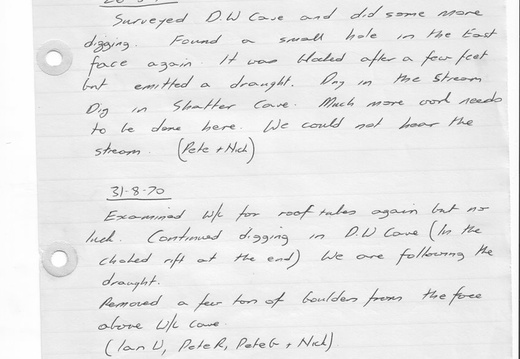 Surveyed D.W Cave and did some more
digging. Found a small hole in the East
face again. It was blocked after a few feet
but emitted a draught. Dry in the Stream
Dig in Shatter Cave. Much more work needs
to be done here. We could not hear the
stream. (Pete + Nich)
31-8-70
Examined W/c for roof tubes again but no
luck. Continued digging in D.W Cave (In the
choked rift at the end) We are following the
draught.
Removed a few tons of boulders from the face
above W/c cave.
(Ian W, Pete R, Pete G + Nich)